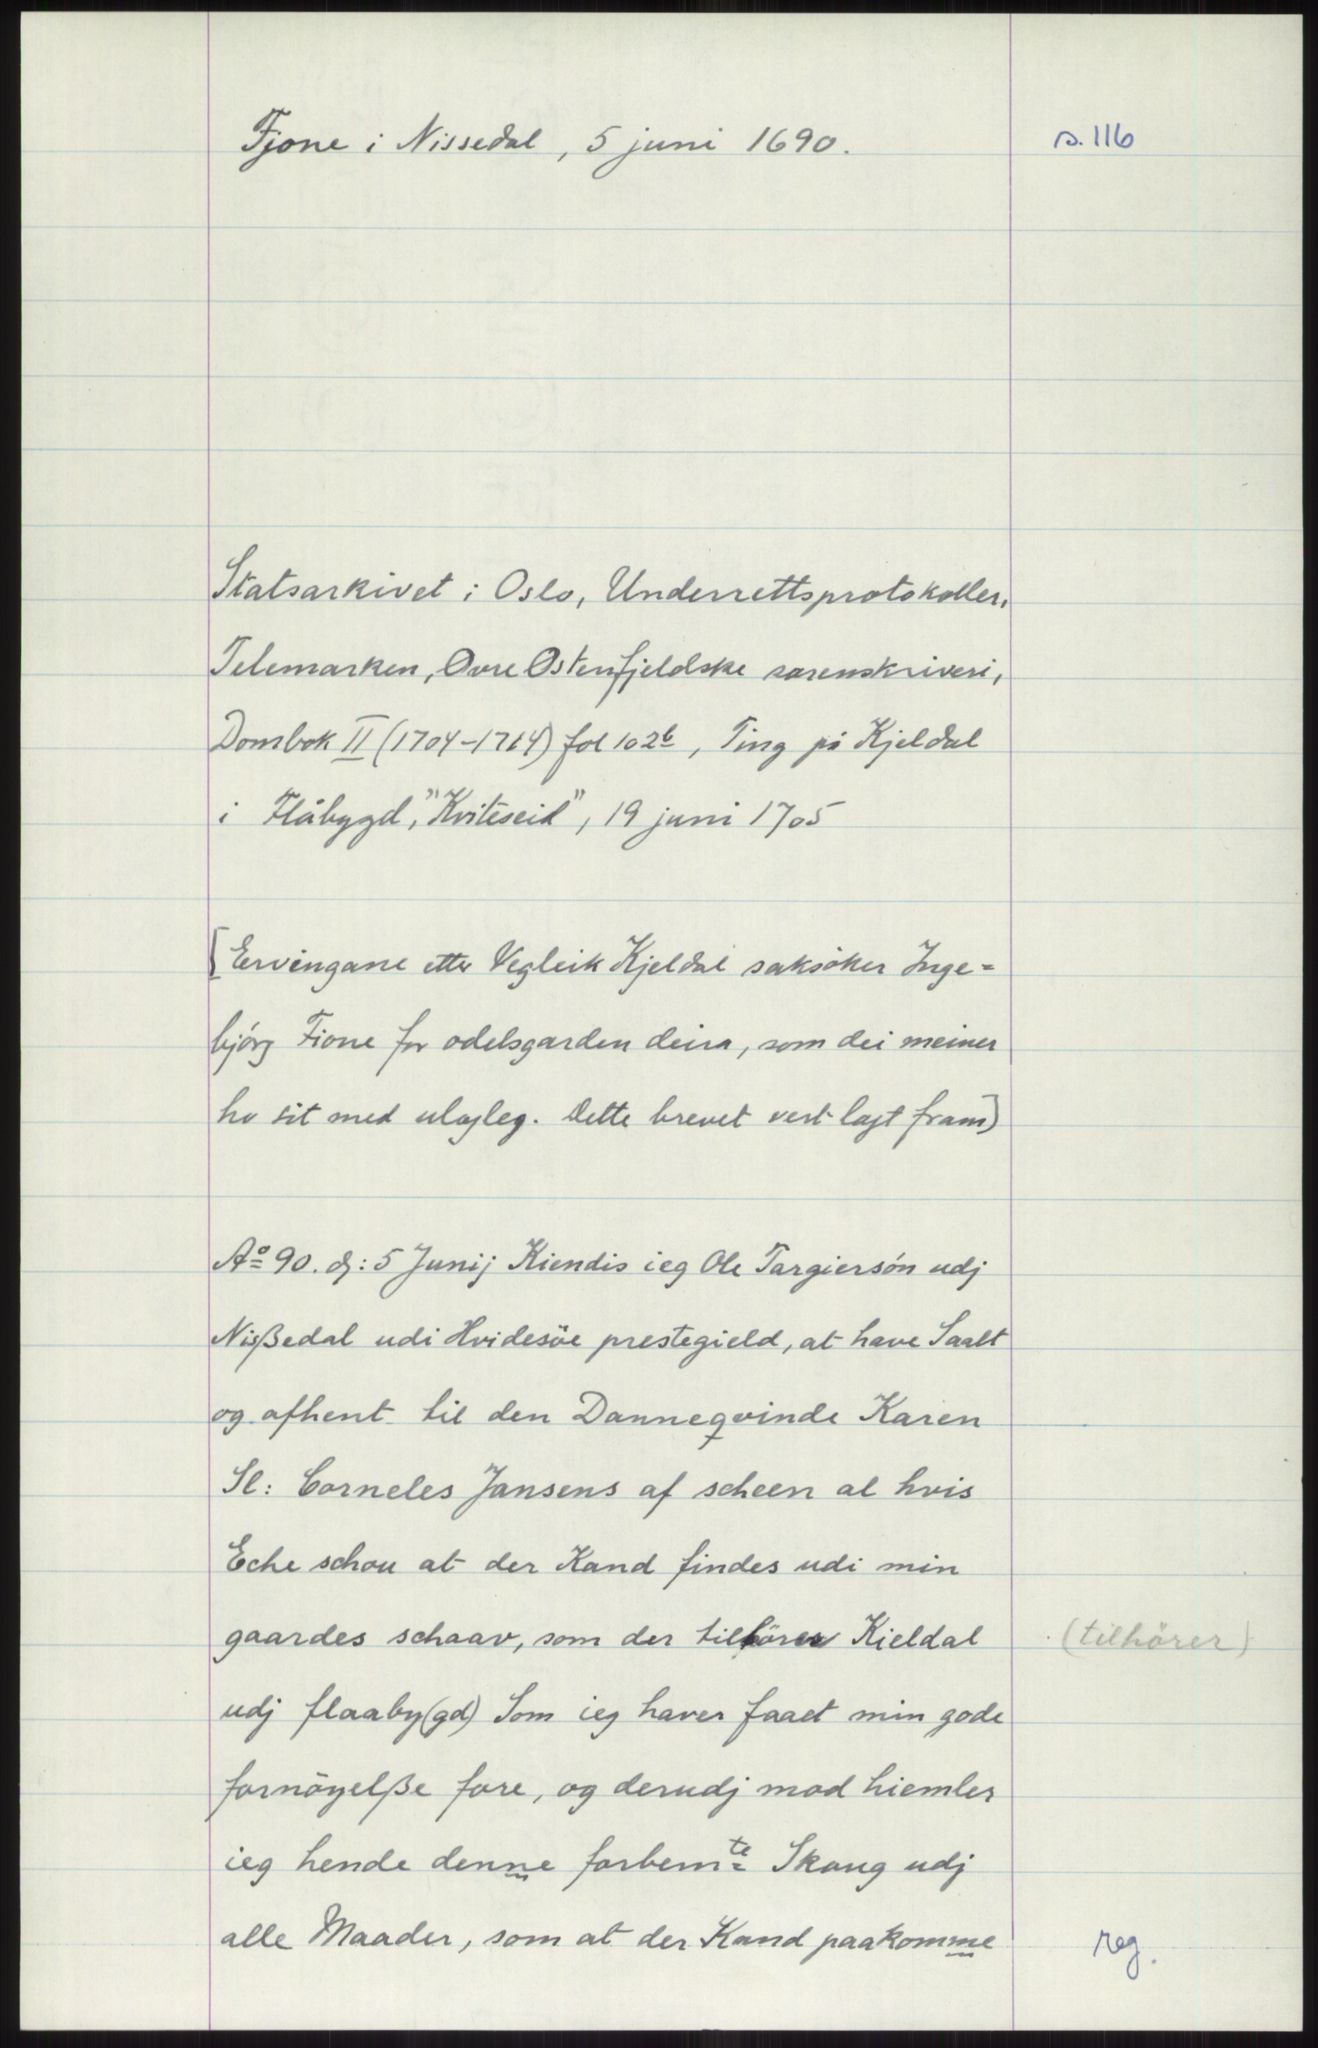 Fjone i Nissedal, 5 juni 1690.
s. 116
Statsarkivet i Oslo, Underrettsprotokoller,
Telemarken, Övre Östenfjeldske sorenskriveri,
Dombok II (1704-1714) fol 102b, Ting på Kjeldal
i Flåbygd, "Kviteseid", 19 juni 1705
[Ervingane etter Vegleik Kjeldal saksöker Inge=
björg Fione for odelsgarden deira, som dei meiner
ho sit med ulogleg. Dette brevet vert lagt fram]
Aº 90. d: 5 Junij Kiendis ieg Ole Targiersön udj
Nißedal udi Hvidesöe prestegield, at have Saalt
og afhent til den Danneqvinde Karen
Sl: Corneles Jansens af scheen al hvis
Eche schou at der Kand findes udi min
gaardes schaav, som der tilhörer Kieldal
(tilhörer)
udj flaaby(gd) Som ieg haver faaet min gode
fornöyelße fore, og derudj mod hiemler
ieg hende denne forbemte Skoug udj
alle Maader, som at der Kand paakomme
reg.